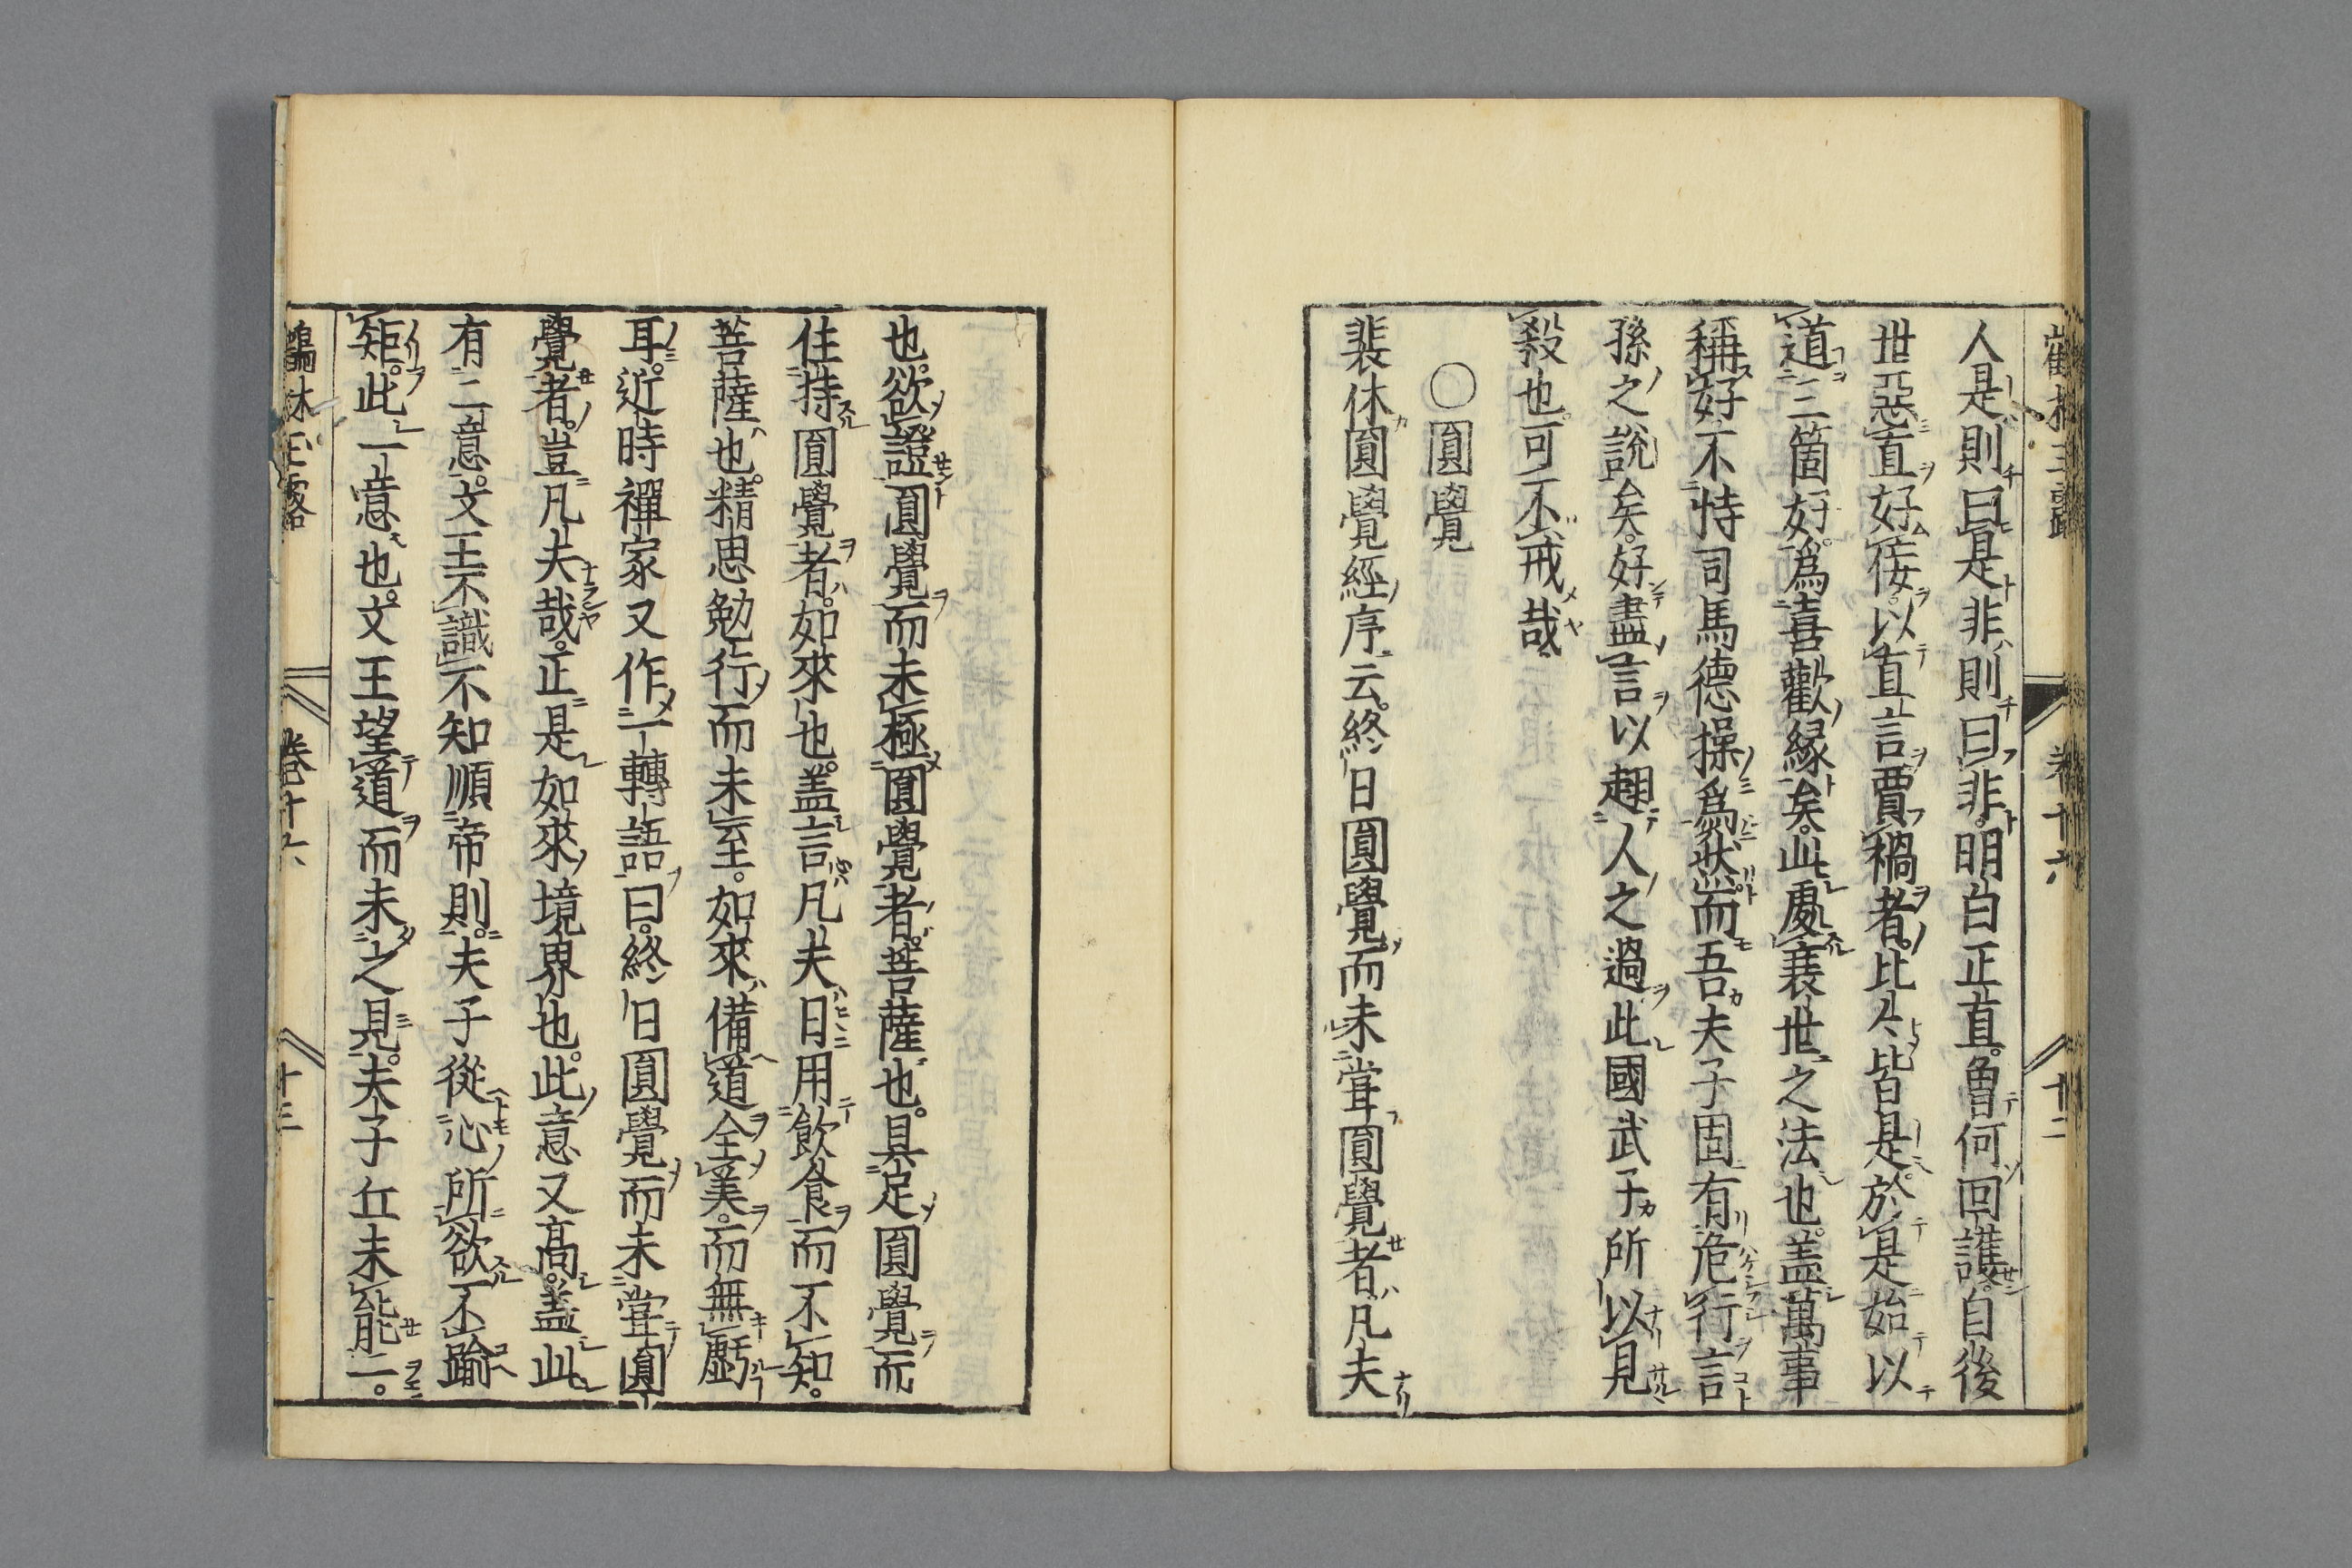 人是則曰是非則曰非明白正直魯何回護自後
世惡直好佞以直言賈禍者比々皆是於是始以
道三箇好為喜歡緣矣此處衰世之法也盖萬事
稱好不特司馬德操為然而吾夫子固有危行言
孫之說矣好盡言以翹人之過此國武子所以見
殺也可不戒哉
〇圓覺
裴休圓覺經序云終日圓覺而未甞圓覺者凡夫
也。欲證圓覺而未極圓覺者。菩薩也。具足圓覺而
住持圓覺者。如來也。盖言凡夫日用飲食而不知。
菩薩也。精思勉行而未至。如來備道全美。而無虧
耳。近時禪家又作一轉語曰。終日圓覺而未甞圓
覺者。豈凡夫哉。正是如來境界也。此意又高。盖此
有二意。文王不識不知順帝則。夫子從心所欲不踰
矩。此一意也。文王望道而未之見。夫子丘未能一。
卷十六
十三